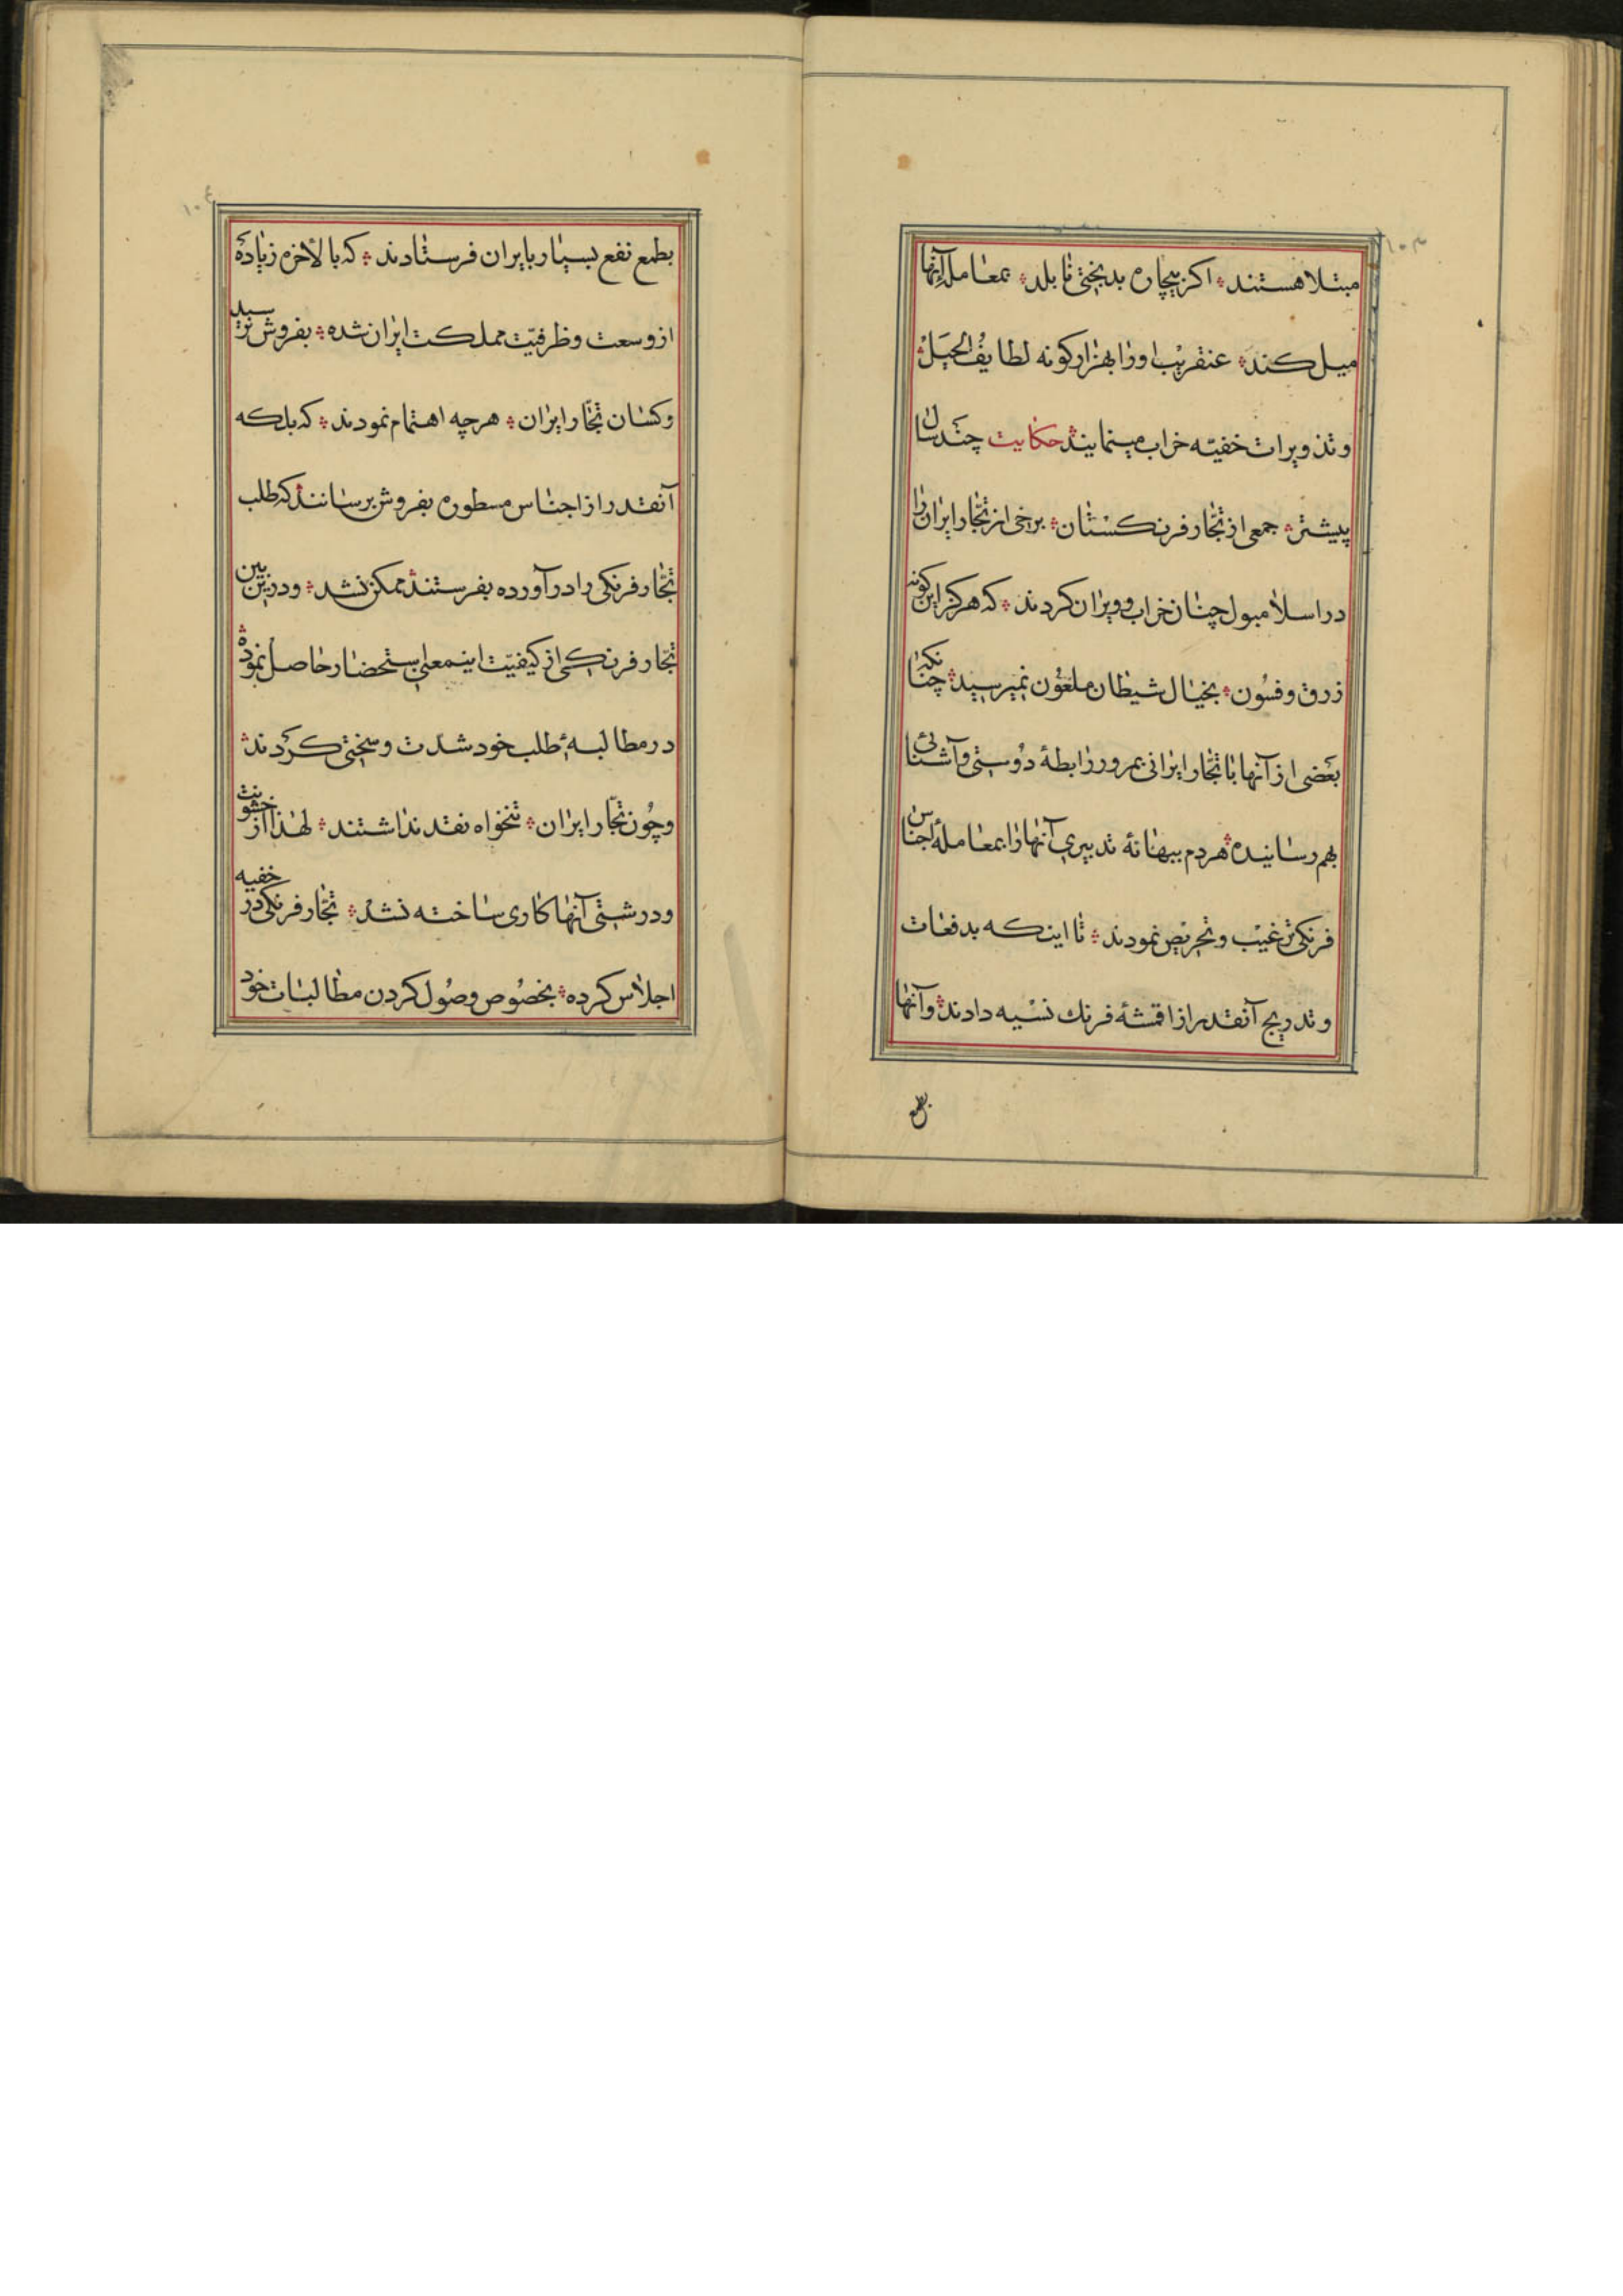 ۱۰۳
مبتلا هستند؞ اکر بیچاره بدبختی نابلد؞ بمعامله آنها
میل کند؞ عنقریب اورا بهزار کونه لطایف الحیل؞
و تذویرات خفیّه خراب مینمایند؞ حکایت چند سال
پیشتر؞ جمعی از تجّار فرنکستان؞ برخی از تجّار ایران را
در اسلامبول چنان خراب و ویران کردند؞ که هرکز این کونه
زرق و فسون؞ بخیال شیطان ملعون نمیرسید؞ چنانکه
بعضی از آنها با تجّار ایرانی بمرور رابطهٔ دوستی و آشنائی
بهم رسانیده؞ هردم ببهانهٔ تدبیری آنها را بمعاملهٔ اجناس
فرنکی ترغیب و تحریص نمودند؞ تا اینکه بدفعات
و تدریج آنقدر از اقمشهٔ فرنك نسیه دادند؞ و آنها
بطمع
۱۰٤
بطمع نفع بسیار بایران فرستادند؞ که بالأخره زیاده
از وسعت و ظرفیّت مملکت ایران شده؞ بفروش نرسید
و کسان تجّار ایران؞ هرچه اهتمام نمودند؞ که بلکه
آنقدر از اجناس مسطوره بفروش برسانند که طلب
تجّار فرنکی را در آورده بفرستند؞ ممکن نشد؞ و در این بین
تجّار فرنکی از کیفیّت اینمعنی استحضار حاصل نموده؞
در مطالبهٔ طلب خود شدّت و سختی کردند؞
و چون تجّار ایران؞ تنخواه نقد نداشتند؞ لهذا از خشونت
و درشتی آنها کاری ساخته نشد؞ تجّار فرنکی در خفیه
اجلاس کرده؞ بخصوص وصول کردن مطالبات خود